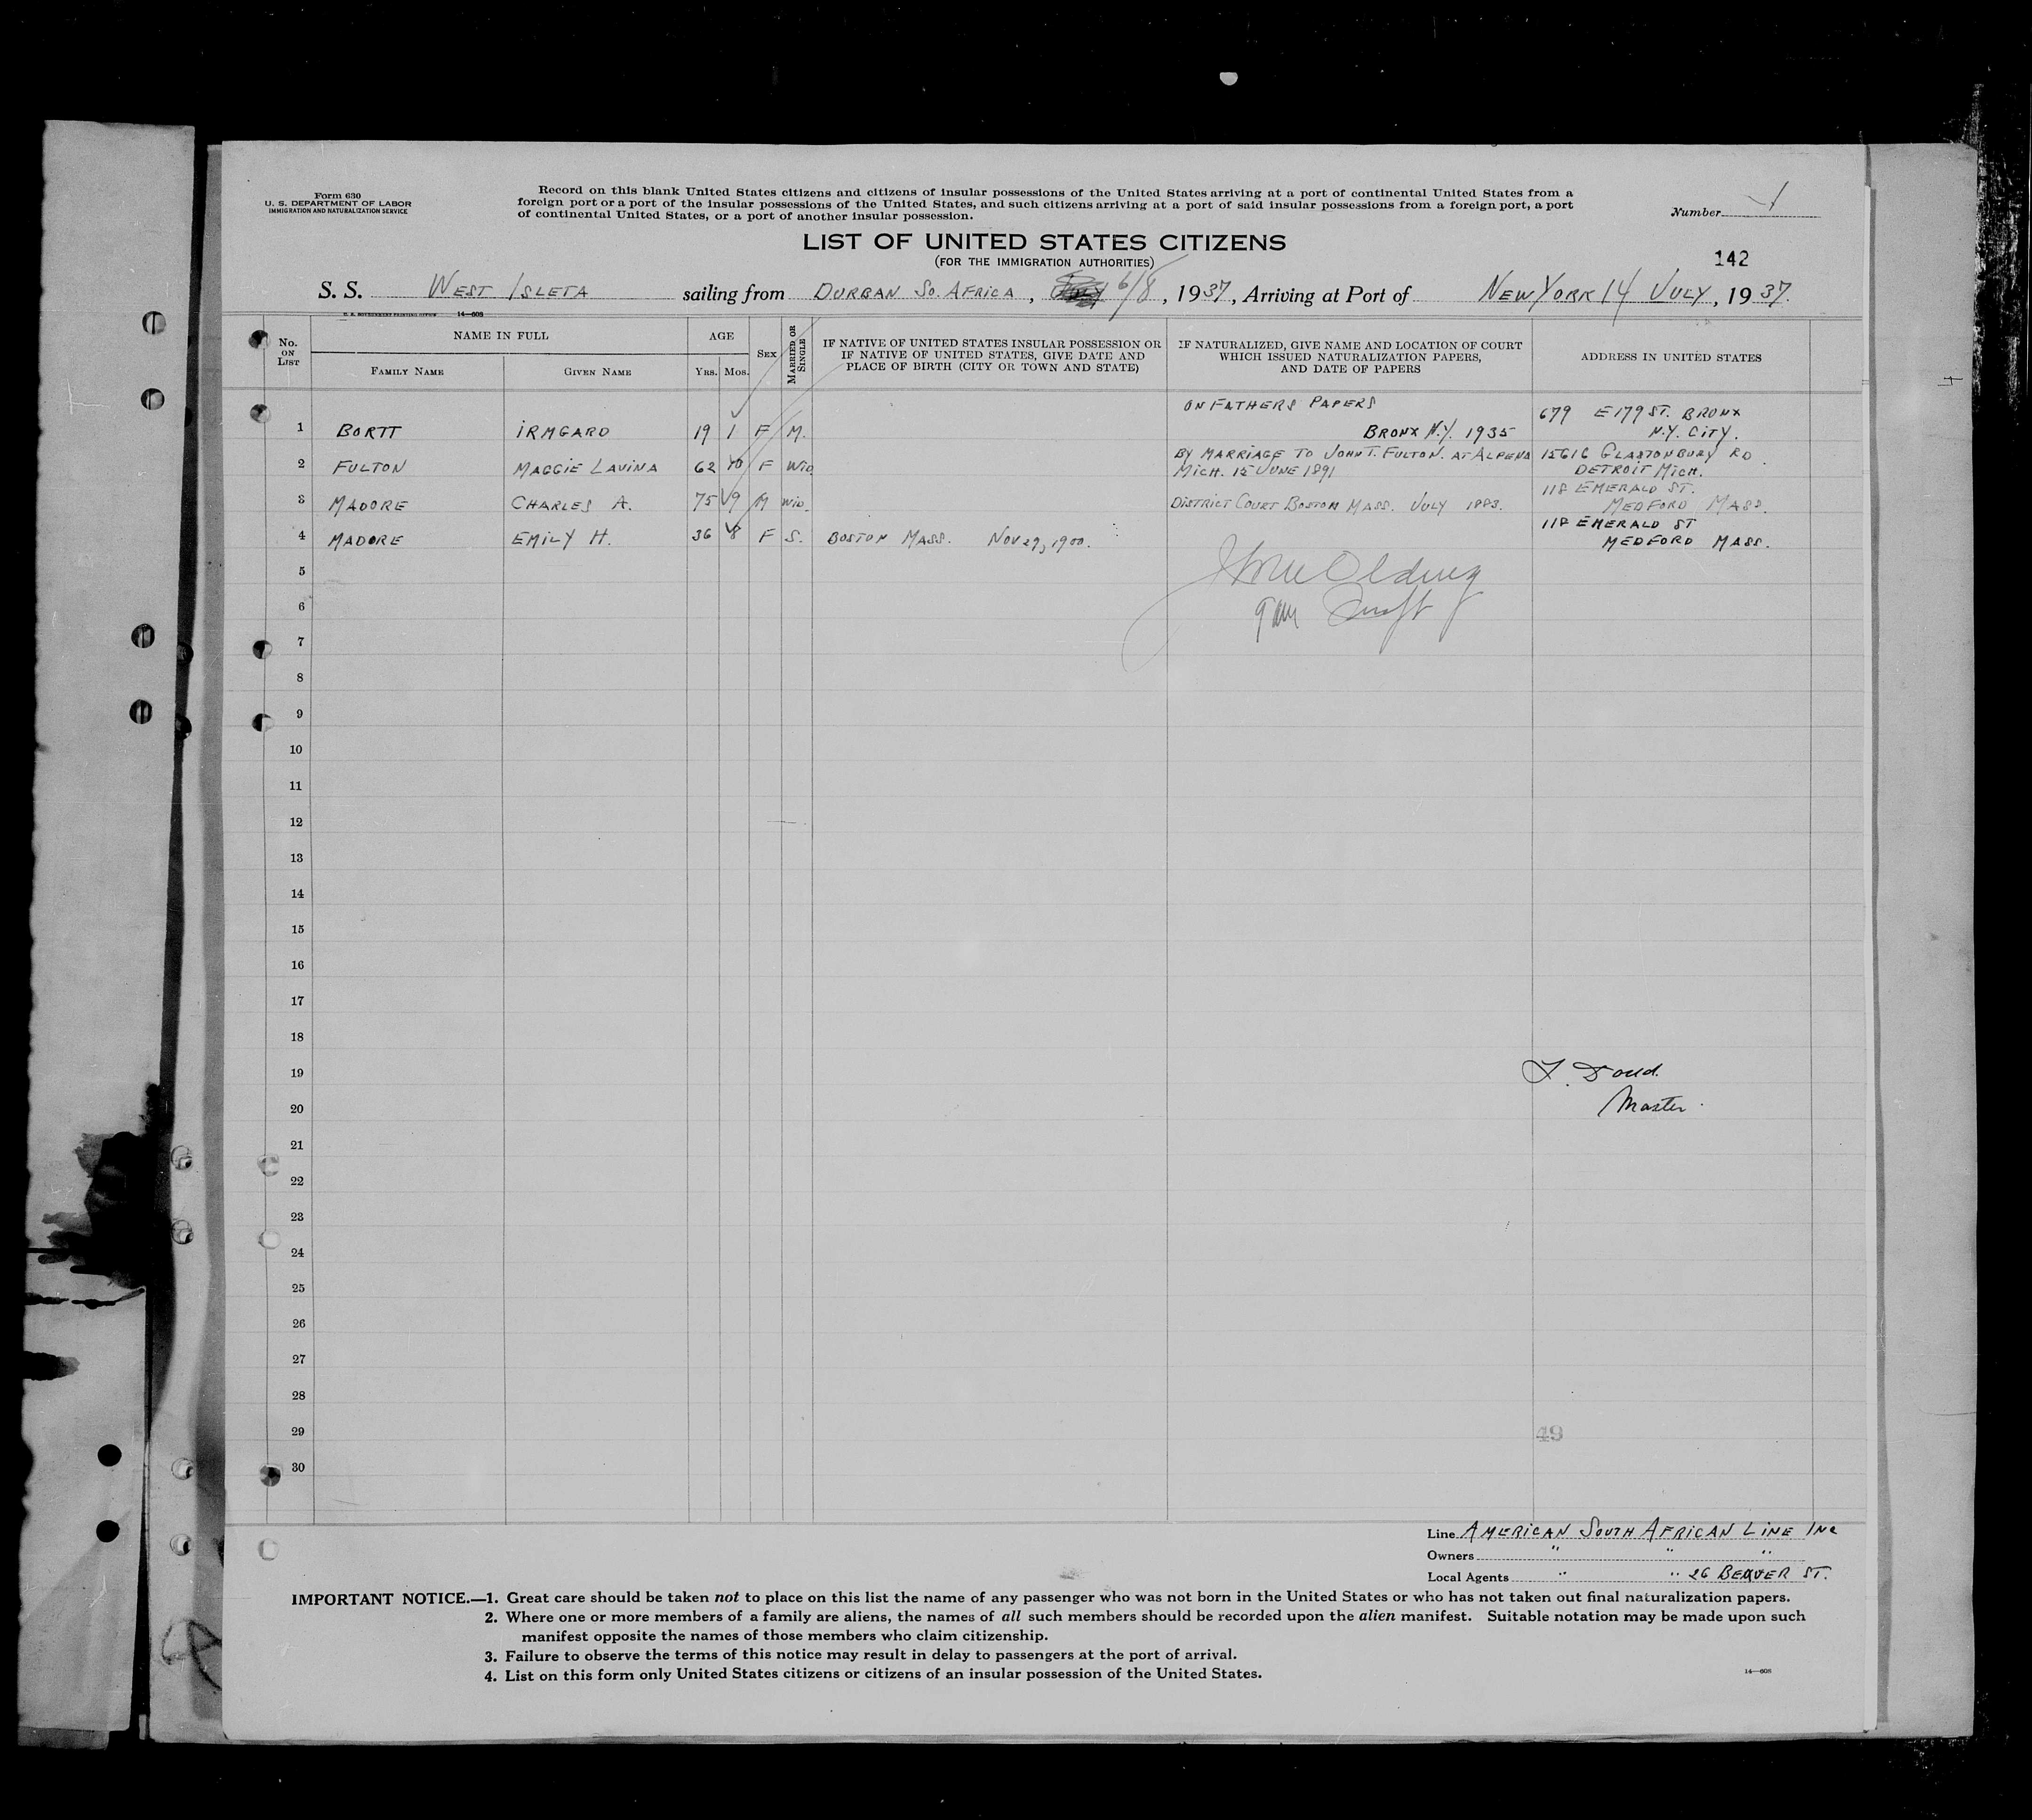 Form 630
U. S. DEPARTMENT OF LABOR
IMMIGRATION AND NATURALIZATION SERVICE
Record on this blank United States citizens and citizens of insular possessions of the United States arriving at a port of continental United States from a
foreign port or a port of the insular possessions of the United States, and such citizens arriving at a port of said insular possessions from a foreign port, a port
of continental United States, or a port of another insular possession.
Number 1
LIST OF UNITED STATES CITIZENS
(FOR THE IMMIGRATION AUTHORITIES)
142
S. S. WEST ISLETA sailing from DURBAN SO. AFRICA, 6/8, 1937, Arriving at Port of NEW YORK 14 JULY, 1937.
U. S. GOVERNMENT PRINTING OFFICE 14—608
No. ON LIST
NAME IN FULL
FAMILY NAME
GIVEN NAME
AGE
YRS. MOS.
SEX
MARRIED OR SINGLE
IF NATIVE OF UNITED STATES INSULAR POSSESSION OR
IF NATIVE OF UNITED STATES, GIVE DATE AND
PLACE OF BIRTH (CITY OR TOWN AND STATE)
IF NATURALIZED, GIVE NAME AND LOCATION OF COURT
WHICH ISSUED NATURALIZATION PAPERS,
AND DATE OF PAPERS
ADDRESS IN UNITED STATES
1 BORTT IRMGARD 19 1 F M. ON FATHERS PAPERS 679 E 179 ST. BRONX
BRONX N.Y. 1935 N.Y. CITY.
2 FULTON MAGGIE LAVINA 62 10 F WID BY MARRIAGE TO JOHN T. FULTON. AT ALPENA 15616 GLASTONBURY RD
MICH. 15 JUNE 1891 DETROIT MICH.
3 MADORE CHARLES A. 75 9 M WID. DISTRICT COURT BOSTON MASS. JULY 1883. 118 EMERALD ST.
MEDFORD MASS.
4 MADORE EMILY H. 36 8 F S. BOSTON MASS. NOV 29, 1900. 118 EMERALD ST
MEDFORD MASS.
5
6
7
8
9
10
11
12
13
14
15
16
17
18
19
20
Master.
21
22
23
24
25
26
27
28
29
49
30
Line AMERICAN SOUTH AFRICAN LINE INC
Owners " " "
Local Agents " " 26 BEAVER ST.
IMPORTANT NOTICE.—1. Great care should be taken not to place on this list the name of any passenger who was not born in the United States or who has not taken out final naturalization papers.
2. Where one or more members of a family are aliens, the names of all such members should be recorded upon the alien manifest. Suitable notation may be made upon such
manifest opposite the names of those members who claim citizenship.
3. Failure to observe the terms of this notice may result in delay to passengers at the port of arrival.
4. List on this form only United States citizens or citizens of an insular possession of the United States.
14—608